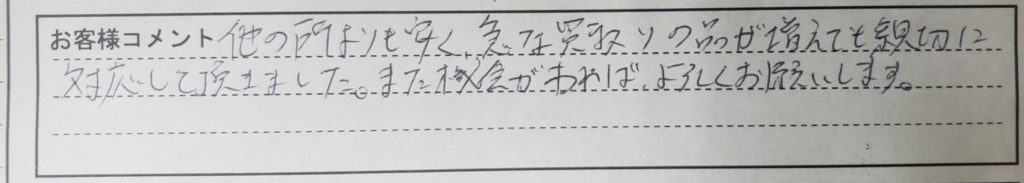 お客様コメント 他の所よりも安く、急な買取りの品が増えても親切に
対応して頂きました。また機会があれば、よろしくお願いします。